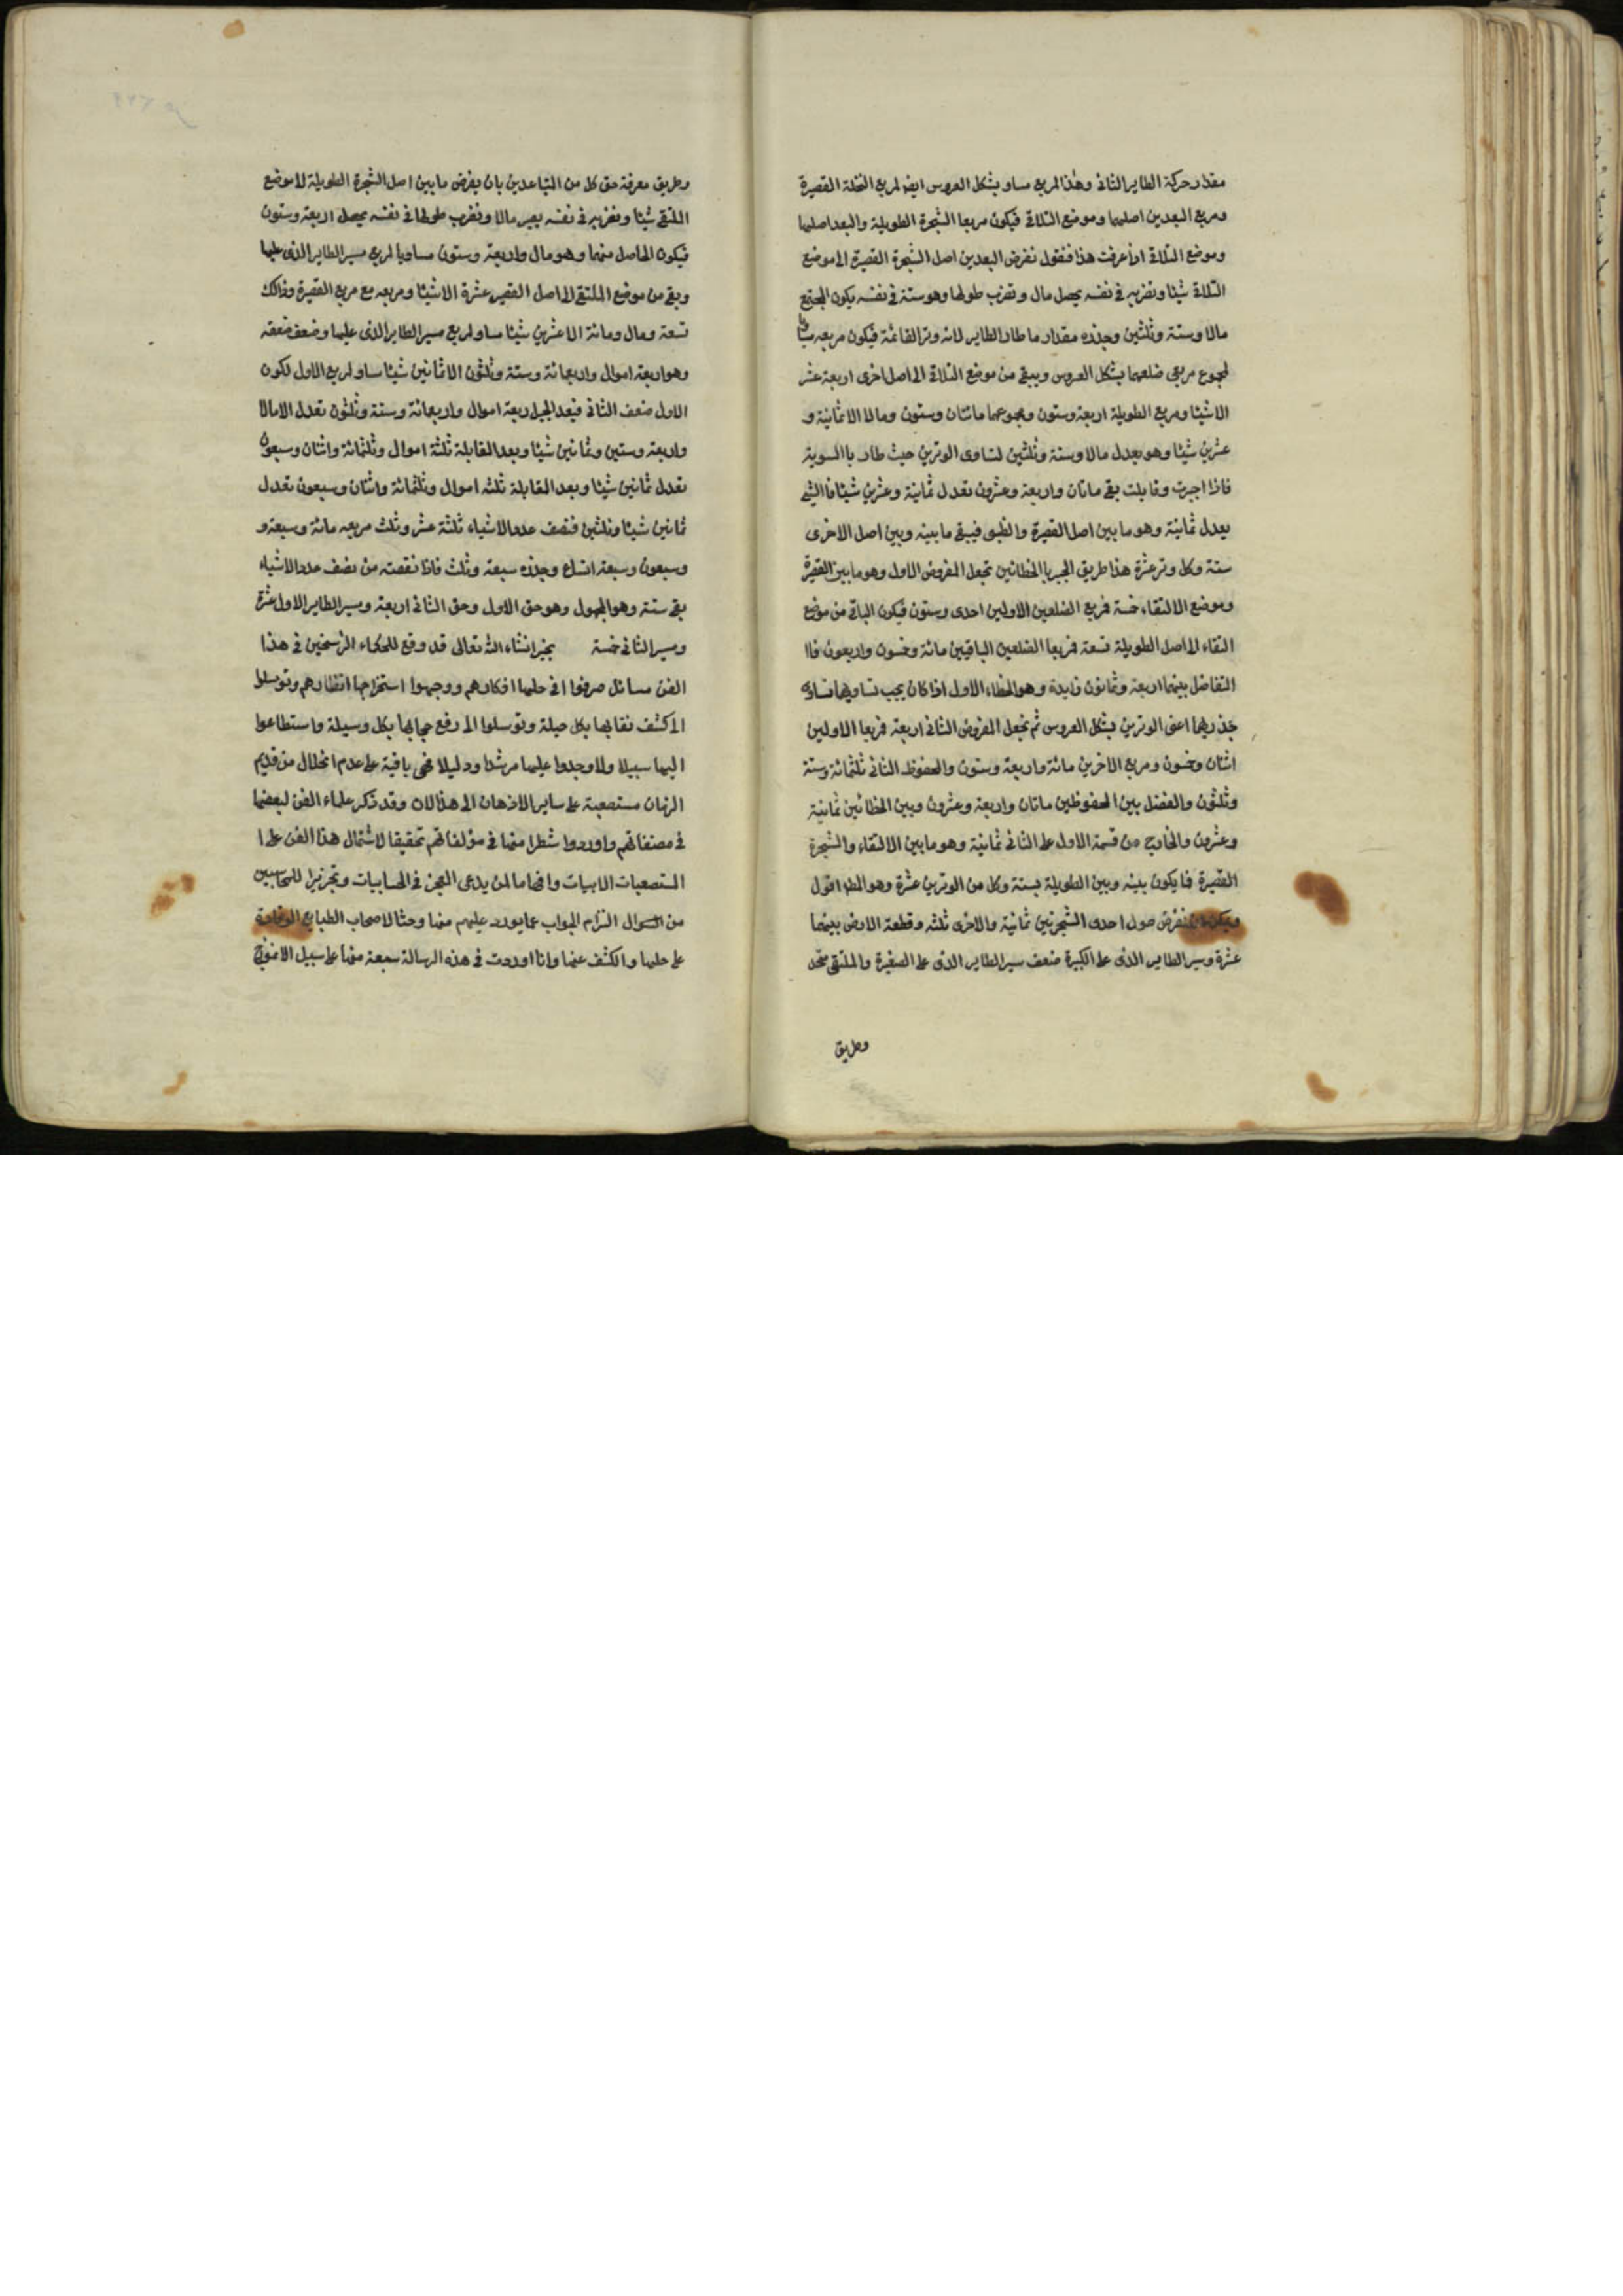 مقدار حركة الطاير الثانى وهذا المربع مساو بشكل العروس ايضا لمربع النخلة القصيرة
ومربع البعد بين اصلهما وموضع التلاقى فيكون مربعا الشجرة الطويلة والبعد اصلها
وموضع التلاقى اذا عرفت هذا فنقول نفرض البعد بين اصل الشجرة القصيرة الى موضع
التلاقى شيئا ونضربه فى نفسه يحصل مال ونضرب طولها وهو ستة فى نفسه يكون المجتمع
مالا وستة وثلثين وجذره مقدار ما طار الطاير لانه وتر القائمة فيكون مربعه مساويا
لمجموع مربعى ضلعيهما بشكل العروس ويبقى من موضع التلاقى الى اصل اخرى اربعة عشر
الا شيئا ومربع الطويلة اربعة وستون ومجموعهما مائتان وستون ومالا الا ثمانية و
عشرين شيئا وهو يعدل مالا وستة وثلثين لتساوى الوترين حيث طار باالسوية
فاذا اجبرت وقابلت بقى ماتان واربعة وعشرون تعدل ثمانية وعشرين شيئا فاالشئ
يعدل ثمانية وهو ما بين اصل القصيرة والظبى فيبقى ما بينه وبين اصل الاخرى
ستة وكل وتر عشرة هذا طريق الجبر باالخطائين تجعل المفروض الاول وهو ما بين القصيرة
وموضع الالتقاء خمسة فربع الضلعين الاولين احدى وستون فيكون الباقى من موضع
التقاء الى اصل الطويلة تسعة فربعا الضلعين الباقيين مائة وخمسون واربعون فاا
التفاضل بينهما اربعة وثمانون زايدة وهو الخطاء الاول اذا كان يجب تساويهما تساوى
جذريهما اعنى الوترين بشكل العروس ثم تجعل المفروض الثانى اربعة فربعا الاولين
اثنان وخمسون ومربع الاخرين مائة واربعة وستون والمحفوظ الثانى ثلثمائة وستة
وثلثون والفضل بين المحفوظين ماتان واربعة وعشرون وبين الخطائين ثمانية
وعشرون والخارج من قسمة الاول على الثانى ثمانية وهو ما بين الالتقاء والشجرة
القصيرة فا يكون بينه وبين الطويلة بستة وكل من الوترين عشرة وهو المط اقول
ويمكن ان نفرض طول احدى الشجرتين ثمانية والاخرى ثلثه وقطعة الارض بينهما
عشرة وسير الطاير الذى على الكبيرة ضعف سير الطاير الذى على الصغيرة والملتقى متحد
وطريق
وطريق معرفة حق كل من المتباعدين بان يفرض ما بين اصل الشجرة الطويلة لا موضع
الملتقى شيئا ونضربه فى نفسه يصير مالا ونضرب طولها فى نفسه يحصل اربعة وستون
فيكون الحاصل منهما وهو مال واربعة وستون مساويا لمربع مسير الطاير الذى عليها
وبقى من موضع الملتقى الى اصل القصير عشرة الا شيئا ومربعه مع مربع القصيرة وذالك
تسعة ومال ومائة الا عشرين شيئا مساو لمربع مسير الطاير الذى عليها وضعف ضعفه
وهو اربعة اموال واربعمائة وستة وثلثون الا ثمانين شيئا مساو لمربع الاول لكون
الاول ضعف الثانى فبعد الجبر اربعة اموال واربعمائة وستة وثلثون تعدل الا مالا
واربعة وستين وثمانين شيئا وبعد المقابلة ثلثة اموال وثلثمائة واثنان وسبعون
تعدل ثمانين شيئا وبعد المقابلة ثلثه اموال وثلثمائة واثنان وسبعون تعدل
ثمانين شيئا وثلثين فنصف عدد الاشياء ثلثة عشر وثلث مربعه مائة وسبعة و
وسبعون وسبعة اتساع وجذره سبعة وثلث فاذا نقصته من نصف عدد الاشياء
بقى ستة وهو المجهول وهو حق الاول وحق الثانى اربعة ومسير الطاير الاول عشرة
ومسير الثانى خمسة بخير انشاء الله تعالى قد وقع للحكماء الرسخين فى هذا
الفن مسائل صرفوا فى حلها افكارهم ووجهوا استخراجها انظارهم وتوسلوا
الى كشف نقابها بكل حيلة وتوسلوا الى رفع حجابها بكل وسيلة واستطاعوا
اليها سبيلا ولا وجدوا عليها مرشدا ودليلا فهى باقية على عدم انحلال من قديم
الزمان مستصعبة على ساير الاذهان الى هذا الان وقد ذكر علماء الفن لبعضها
فى مصنفاتهم واوردوا شطرا منها فى مؤلفاتهم تحقيقا لاشتمال هذا الفن على ا
المستصعبات الابيات وافحاما لمن يدعى العجز فى الحسابيات وتحزيرا للمحاسبين
من السوال التزام الجواب عما يورد عليهم منها وحثا لاصحاب الطبايع الوقادة
على حلها والكشف عنها وانا اوردت فى هذه الرسالة سبعة منها على سبيل الانموذج